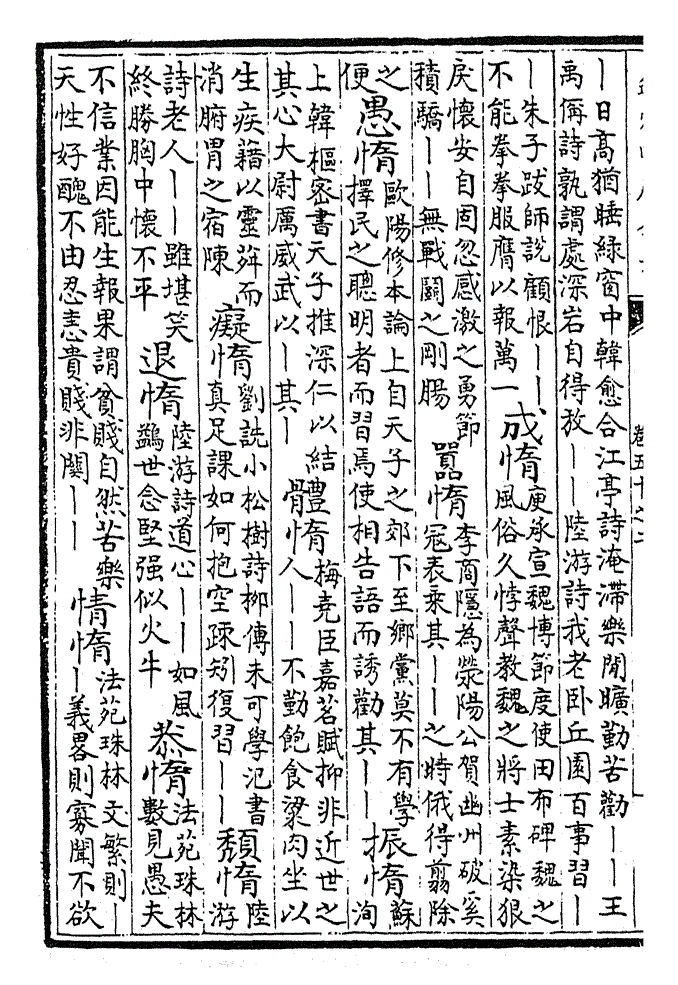 卷五十之二
丨日高猶睡綠窗中韓愈合江亭詩淹滯樂閒曠勤苦勸丨丨王
禹偁詩孰謂處深岩自得放丨丨陸游詩我老卧丘園百事習丨
丨朱子跋師說顧恨丨丨
不能拳拳服膺以報萬一
戍惰
庾承宣魏博節度使田布碑魏之
風俗久悖聲教魏之將士素染狠
戾懷安自固忽感激之勇節
積驕丨丨無戰鬭之剛腸
嚚惰
李商隱為滎陽公賀幽州破奚
冦表乘其丨丨之時俄得翦除
之
便
愚惰
歐陽修本論上自天子之郊下至鄉黨莫不有學
擇民之聰明者而習焉使相告語而誘勸其丨丨
振惰
蘇
洵
上韓樞密書天子推深仁以結
其心大尉厲威武以丨其丨
體惰
梅堯臣嘉茗賦抑非近世之
人丨丨不勤飽食粱肉坐以
生疾藉以靈荈而
消腑胃之宿陳
癡惰
劉詵小松樹詩柳傳未可學氾書
真足課如何抱空疎矧復習丨丨
頹惰
陸
游
詩老人丨丨雖堪笑
終勝胸中懷不平
退惰
陸游詩道心丨丨如風
鷁世念堅强似火牛
恭惰
法苑珠林
數見愚夫
不信業因能生報果謂貧賤自然苦樂
天性好醜不由忍恚貴賤非關丨丨
情惰
法苑珠林文繁則丨
丨義畧則寡聞不欲